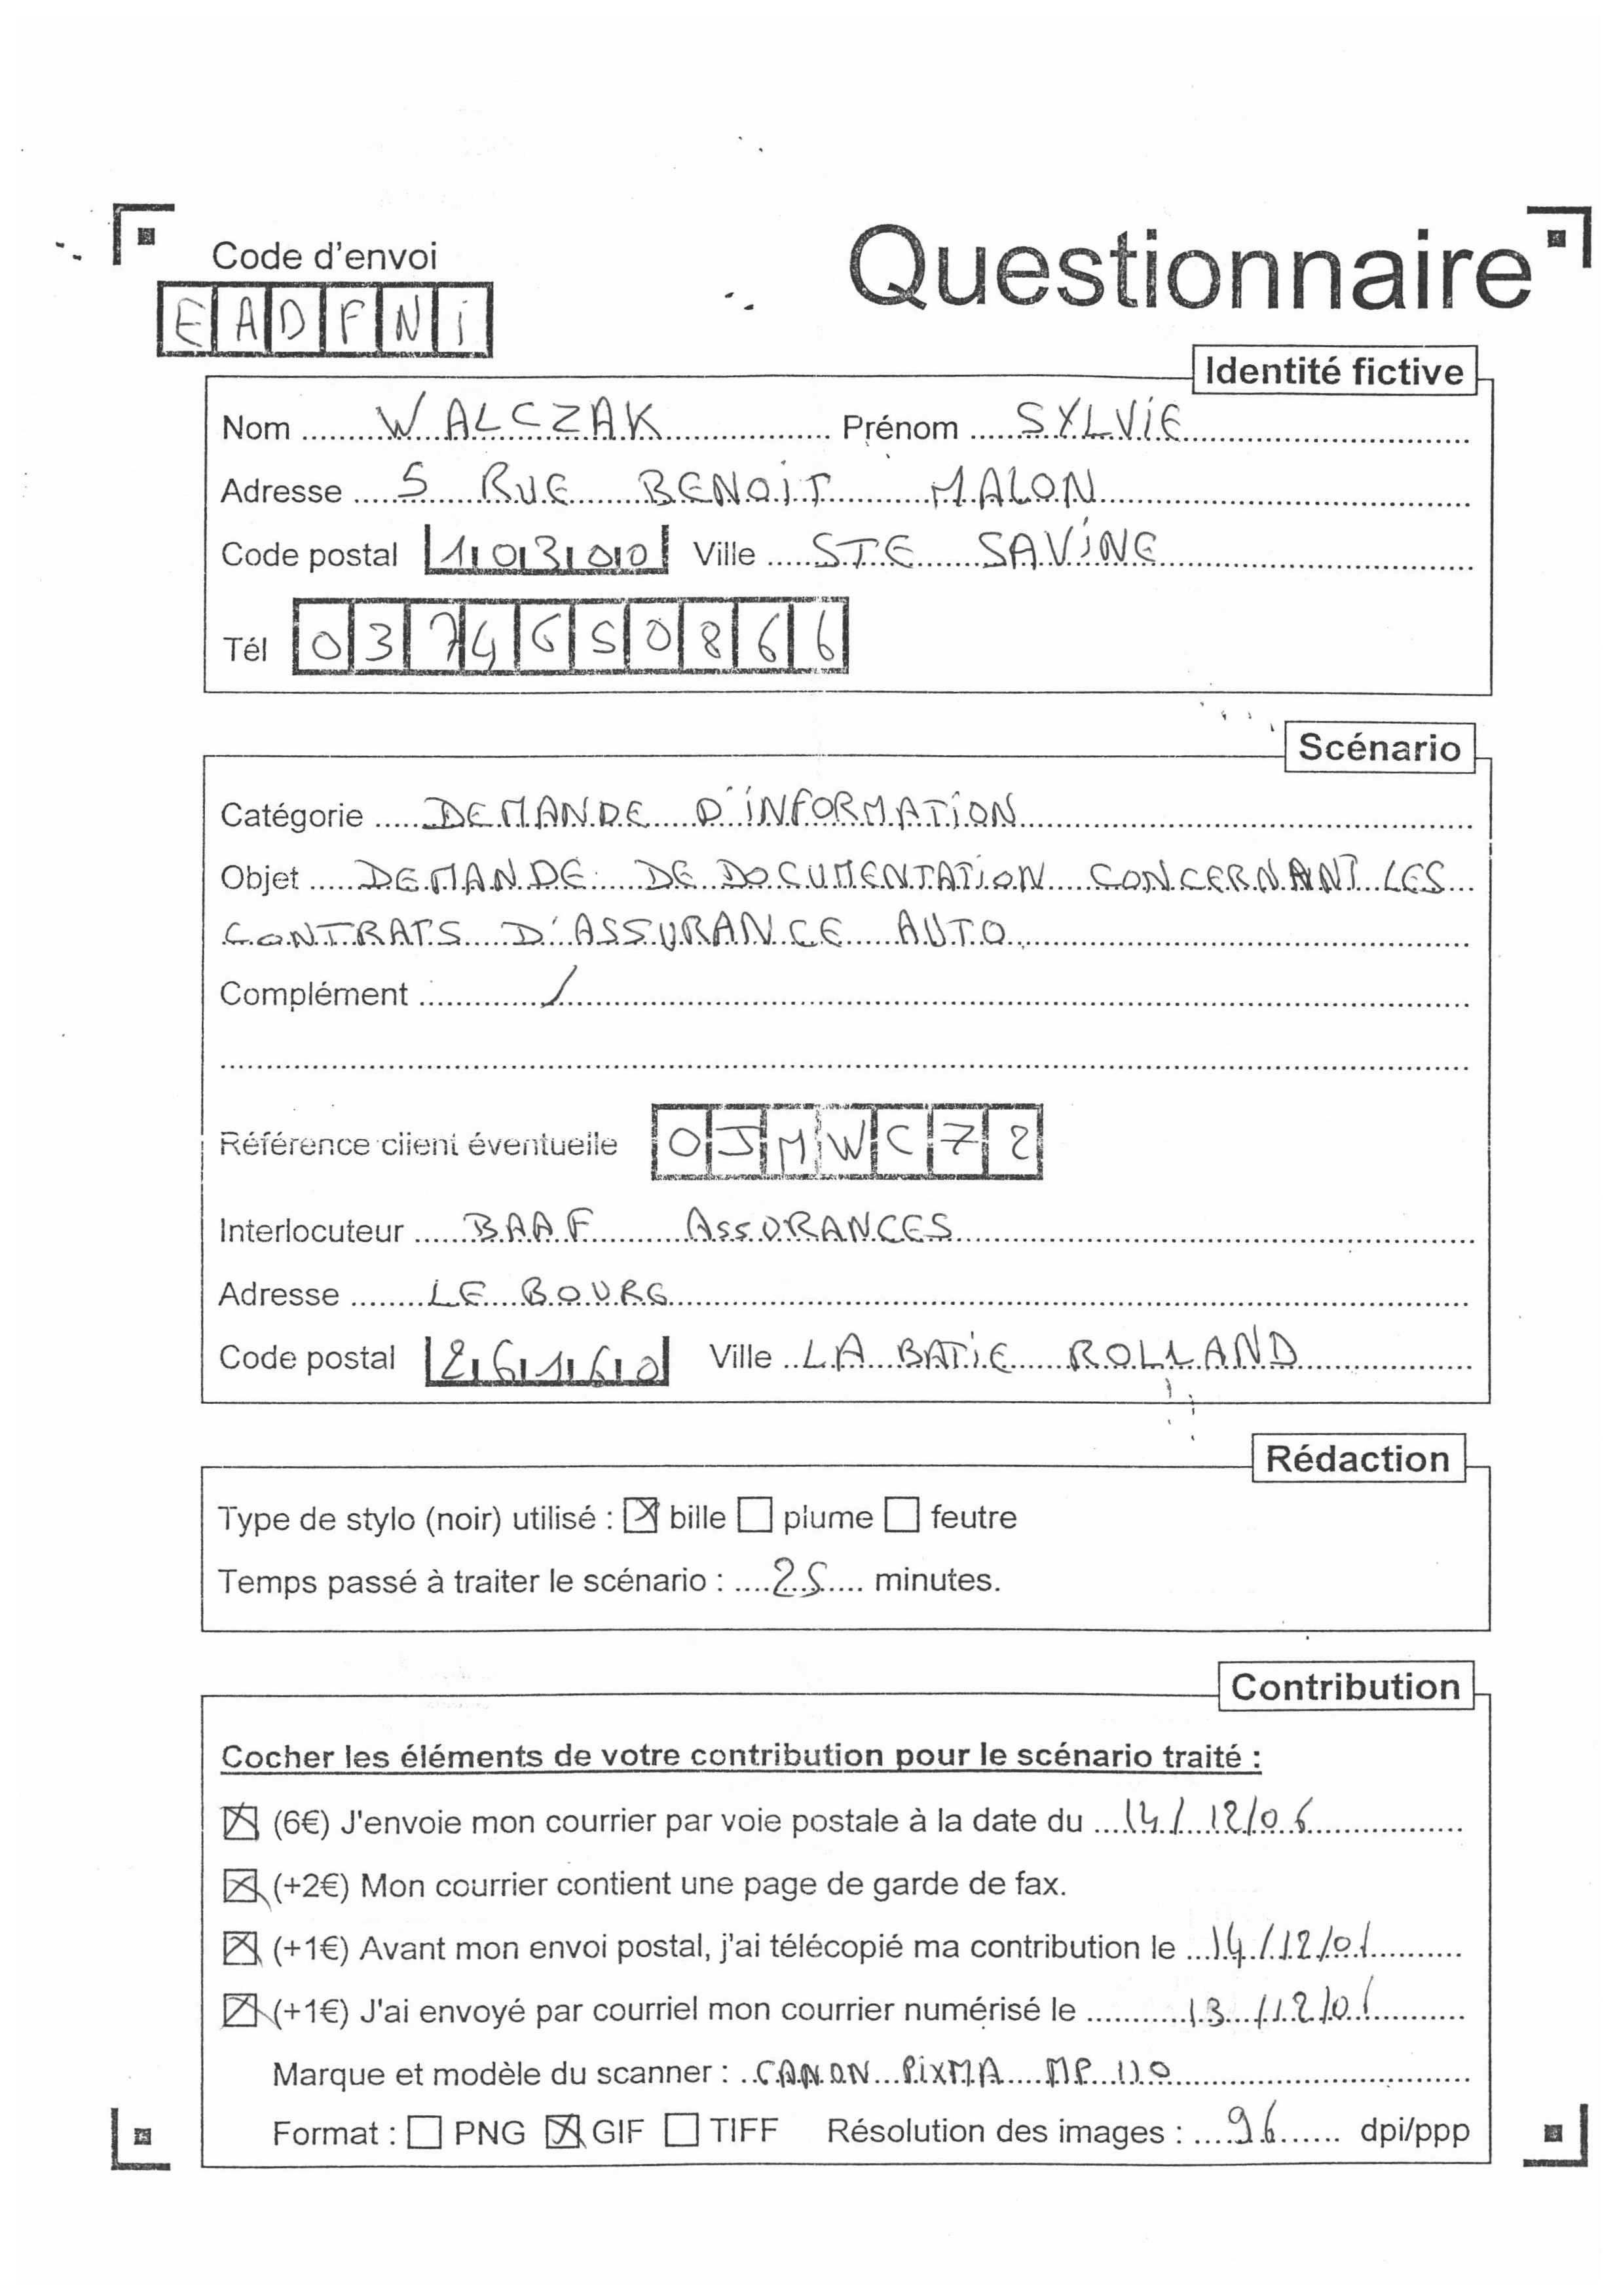 Code d'envoi
Questionnaire
EADFNi
Identité fictive
Nom WALCZAK Prénom SYLViE
Adresse 5 RUE BENOiT MALON
Code postal 10300 Ville STE SAViNE
Tél 0374650866
Scénario
Catégorie DEMANDE D'iNFORMATiON
Objet DEMANDE DE DOCUMENTATiON CONCERNANT LES
CONTRATS D'ASSURANCE AUTO
Complément /
Référence client éventuelle OJMWC72
Interlocuteur BAAF ASSURANCES
Adresse LE BOURG
Code postal 26160 Ville LA BATiE ROLLAND
Rédaction
Type de stylo (noir) utilisé : ☒ bille ☐ plume ☐ feutre
Temps passé à traiter le scénario : 25 minutes.
Contribution
Cocher les éléments de votre contribution pour le scénario traité :
☒ (6€) J'envoie mon courrier par voie postale à la date du 14/12/06
☒ (+2€) Mon courrier contient une page de garde de fax.
☒ (+1€) Avant mon envoi postal, j'ai télécopié ma contribution le 14/12/0
☒ (+1€) J'ai envoyé par courriel mon courrier numérisé le 13/12/0
Marque et modèle du scanner : CANON PiXMA MP 110
Format : ☐ PNG ☒ GIF ☐ TIFF Résolution des images : 96 dpi/ppp